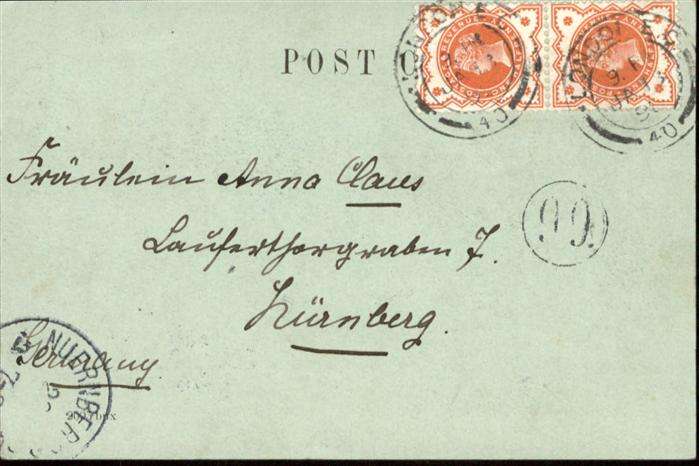 POST
Fräulein Anna Claus
Lauferthorgraben 7.
Nürnberg.
Germany
99.
LONDON
40
LONDON
40
NUERNBERG